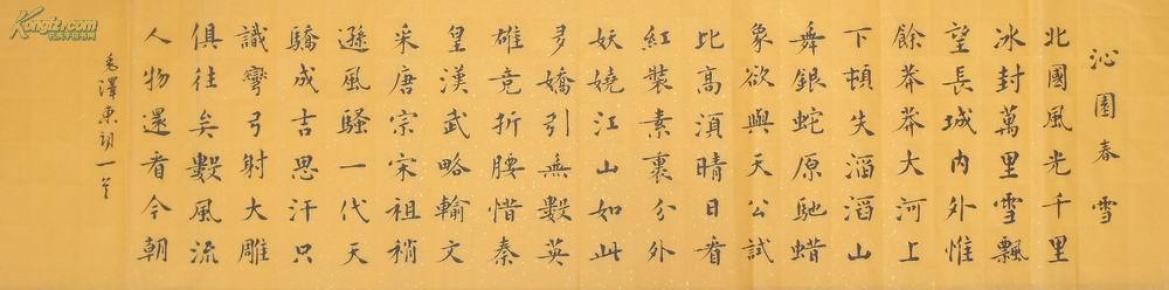 沁園春雪
北國風光千里
冰封萬里雪飄
望長城內外惟
餘莽莽大河上
下頓失滔滔山
舞銀蛇原馳蜡
象欲與天公試
比高須晴日看
紅裝素裹分外
妖嬈江山如此
多嬌引無數英
雄竟折腰惜秦
皇漢武略輸文
采唐宗宋祖稍
遜風騷一代天
驕成吉思汗只
識彎弓射大雕
俱往矣數風流
人物還看今朝
毛澤東詞一首
Kongfz.com
孔夫子旧书网